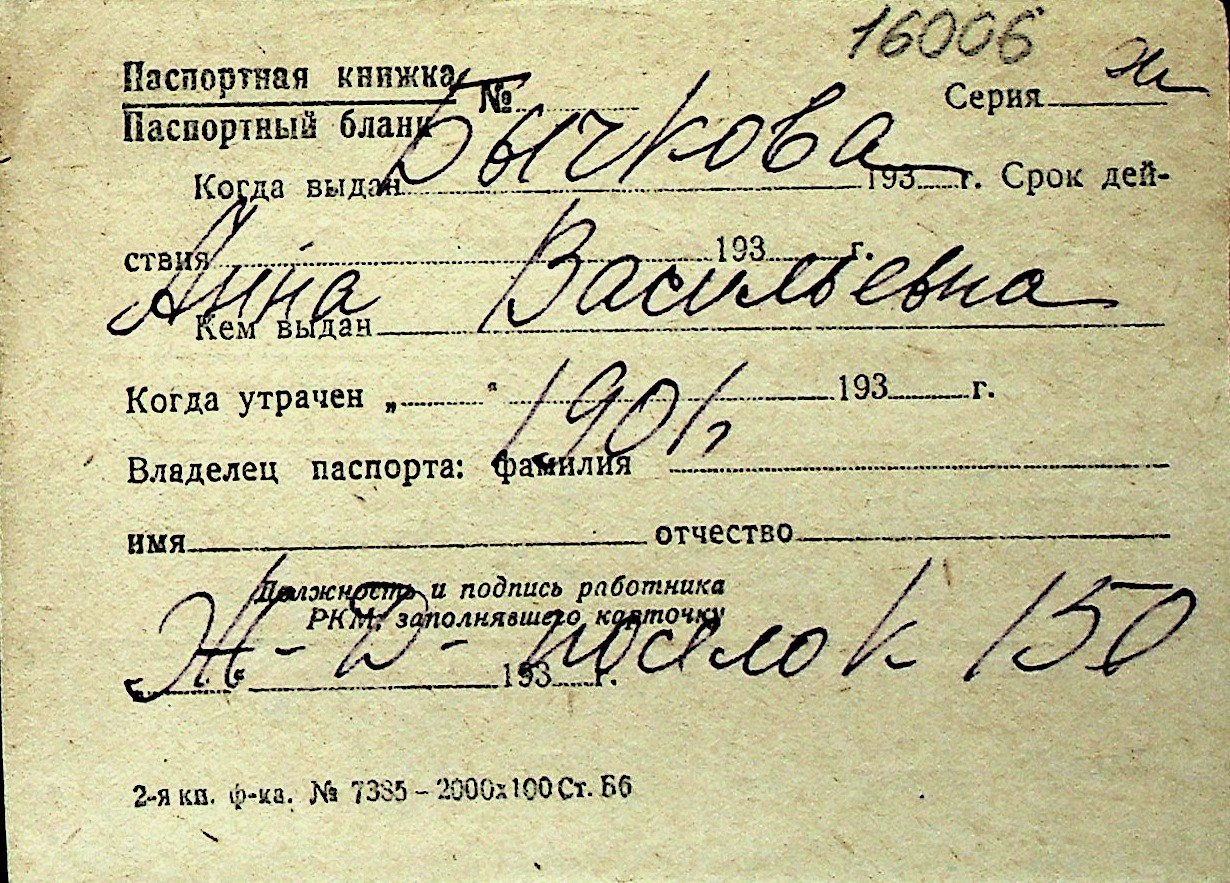 16006 Эи
Паспортная книжка
№ Серия
Паспортный бланк
Бычкова
Когда выдан 193 г. Срок дей-
ствия 193 г.
Анна Васильевна
Кем выдан
Когда утрачен „ " 193 г.
1901 г
Владелец паспорта: фамилия
имя отчество
Должность и подпись работника
РКМ, заполнявшего карточку
Ж-Д- поселок 150
„ " 193 г.
2-я кп. ф-ка. № 7385 – 2000х100 Ст. Б6